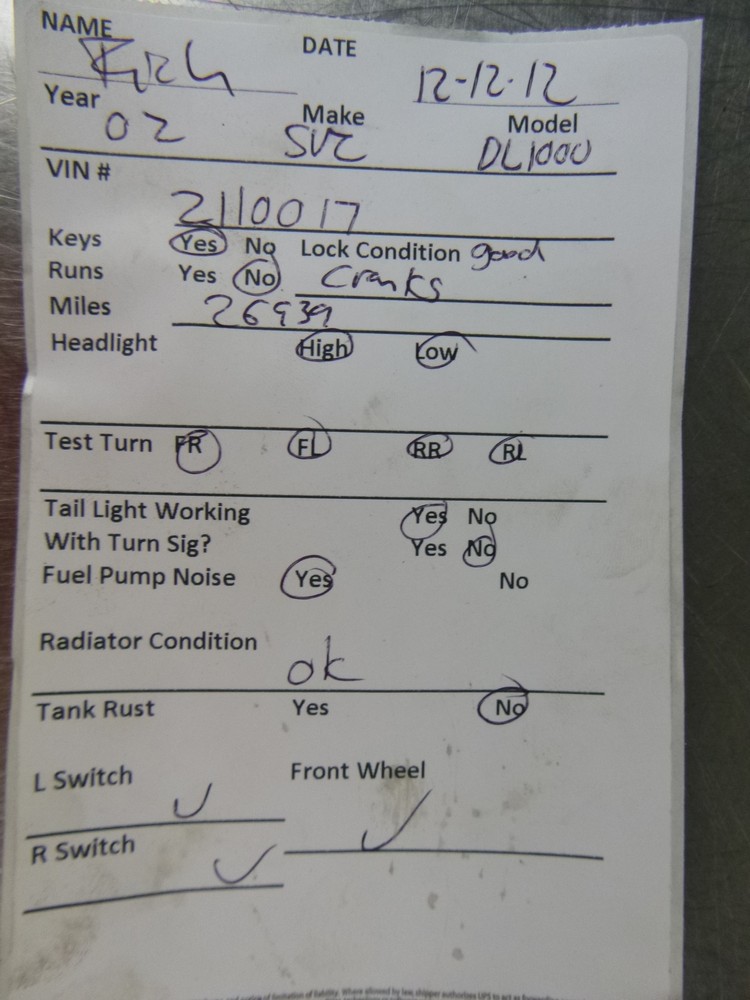 NAME DATE
Rich 12-12-12
Year Make Model
02 SUZ DL1000
VIN #
2110017
Keys Yes No Lock Condition good
Runs Yes No Cranks
Miles 26939
Headlight High Low
Test Turn FR FL RR RL
Tail Light Working Yes No
With Turn Sig? Yes No
Fuel Pump Noise Yes No
Radiator Condition
ok
Tank Rust Yes No
L Switch Front Wheel
R Switch